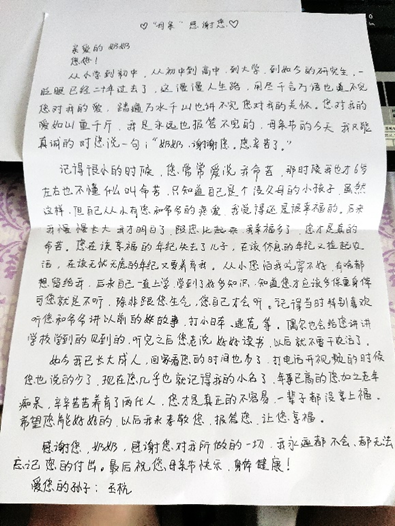 ♡"母亲"感谢您♡
亲爱的奶奶
您好！
从小学到初中，从初中到高中，到大学，到如今的研究生，一
眨眼已经二十年过去了，这漫漫人生路，用尽千言万语也道不完
您对我的爱，踏遍万水千山也讲不完您对我的关怀。您对我的
爱如山重千斤，我是永远也报答不完的，母亲节的今天，我只能
真诚的对您说一句："奶奶，谢谢您。您辛苦了。"
记得很小的时候，您常常爱说我命苦，那时候我也才6岁
左右也不懂什么叫命苦，只知道自己是个没父母的小孩子，虽然
这样，但自己从小有您和爷爷的亲爱，我觉得还是很幸福的。后来
我慢慢长大，我才明白了，跟您比起来，我幸福多了，您才是真的
命苦。您在该享福的年纪失去了儿子，在该休息的年纪又挑起农
活，在该无忧无虑的年纪又要养育我。从小您怕我吃穿不好，有啥都
想留给我，后来自己一直上学，学到了好多知识，知道您才应该多保重身体
可您就是不听，除非跟您生气，您自己才会听。记得当时特别喜欢
听您和爷爷讲以前的故事，打小日本、逃荒等。偶尔也会给您讲讲
学校学到的见到的，听完之后您老说好好读书，以后就不用干农活了。
如今我已长大成人，回家看您的时间也少了，打电话开视频的时候
您也说的少了，现在您几乎也就记得我的小名了，年事已高的您加之老年
痴呆，辛辛苦苦养育了两代人，您才是真正的不容易，一辈子都没享上福。
希望您能好好的，以后我来孝敬您，报答您，让您享福。
感谢您，奶奶，感谢您对我所做的一切，我永远都不会，都无法
忘记您的付出。最后祝您母亲节快乐，身体健康！
爱您的孙子：丕杭